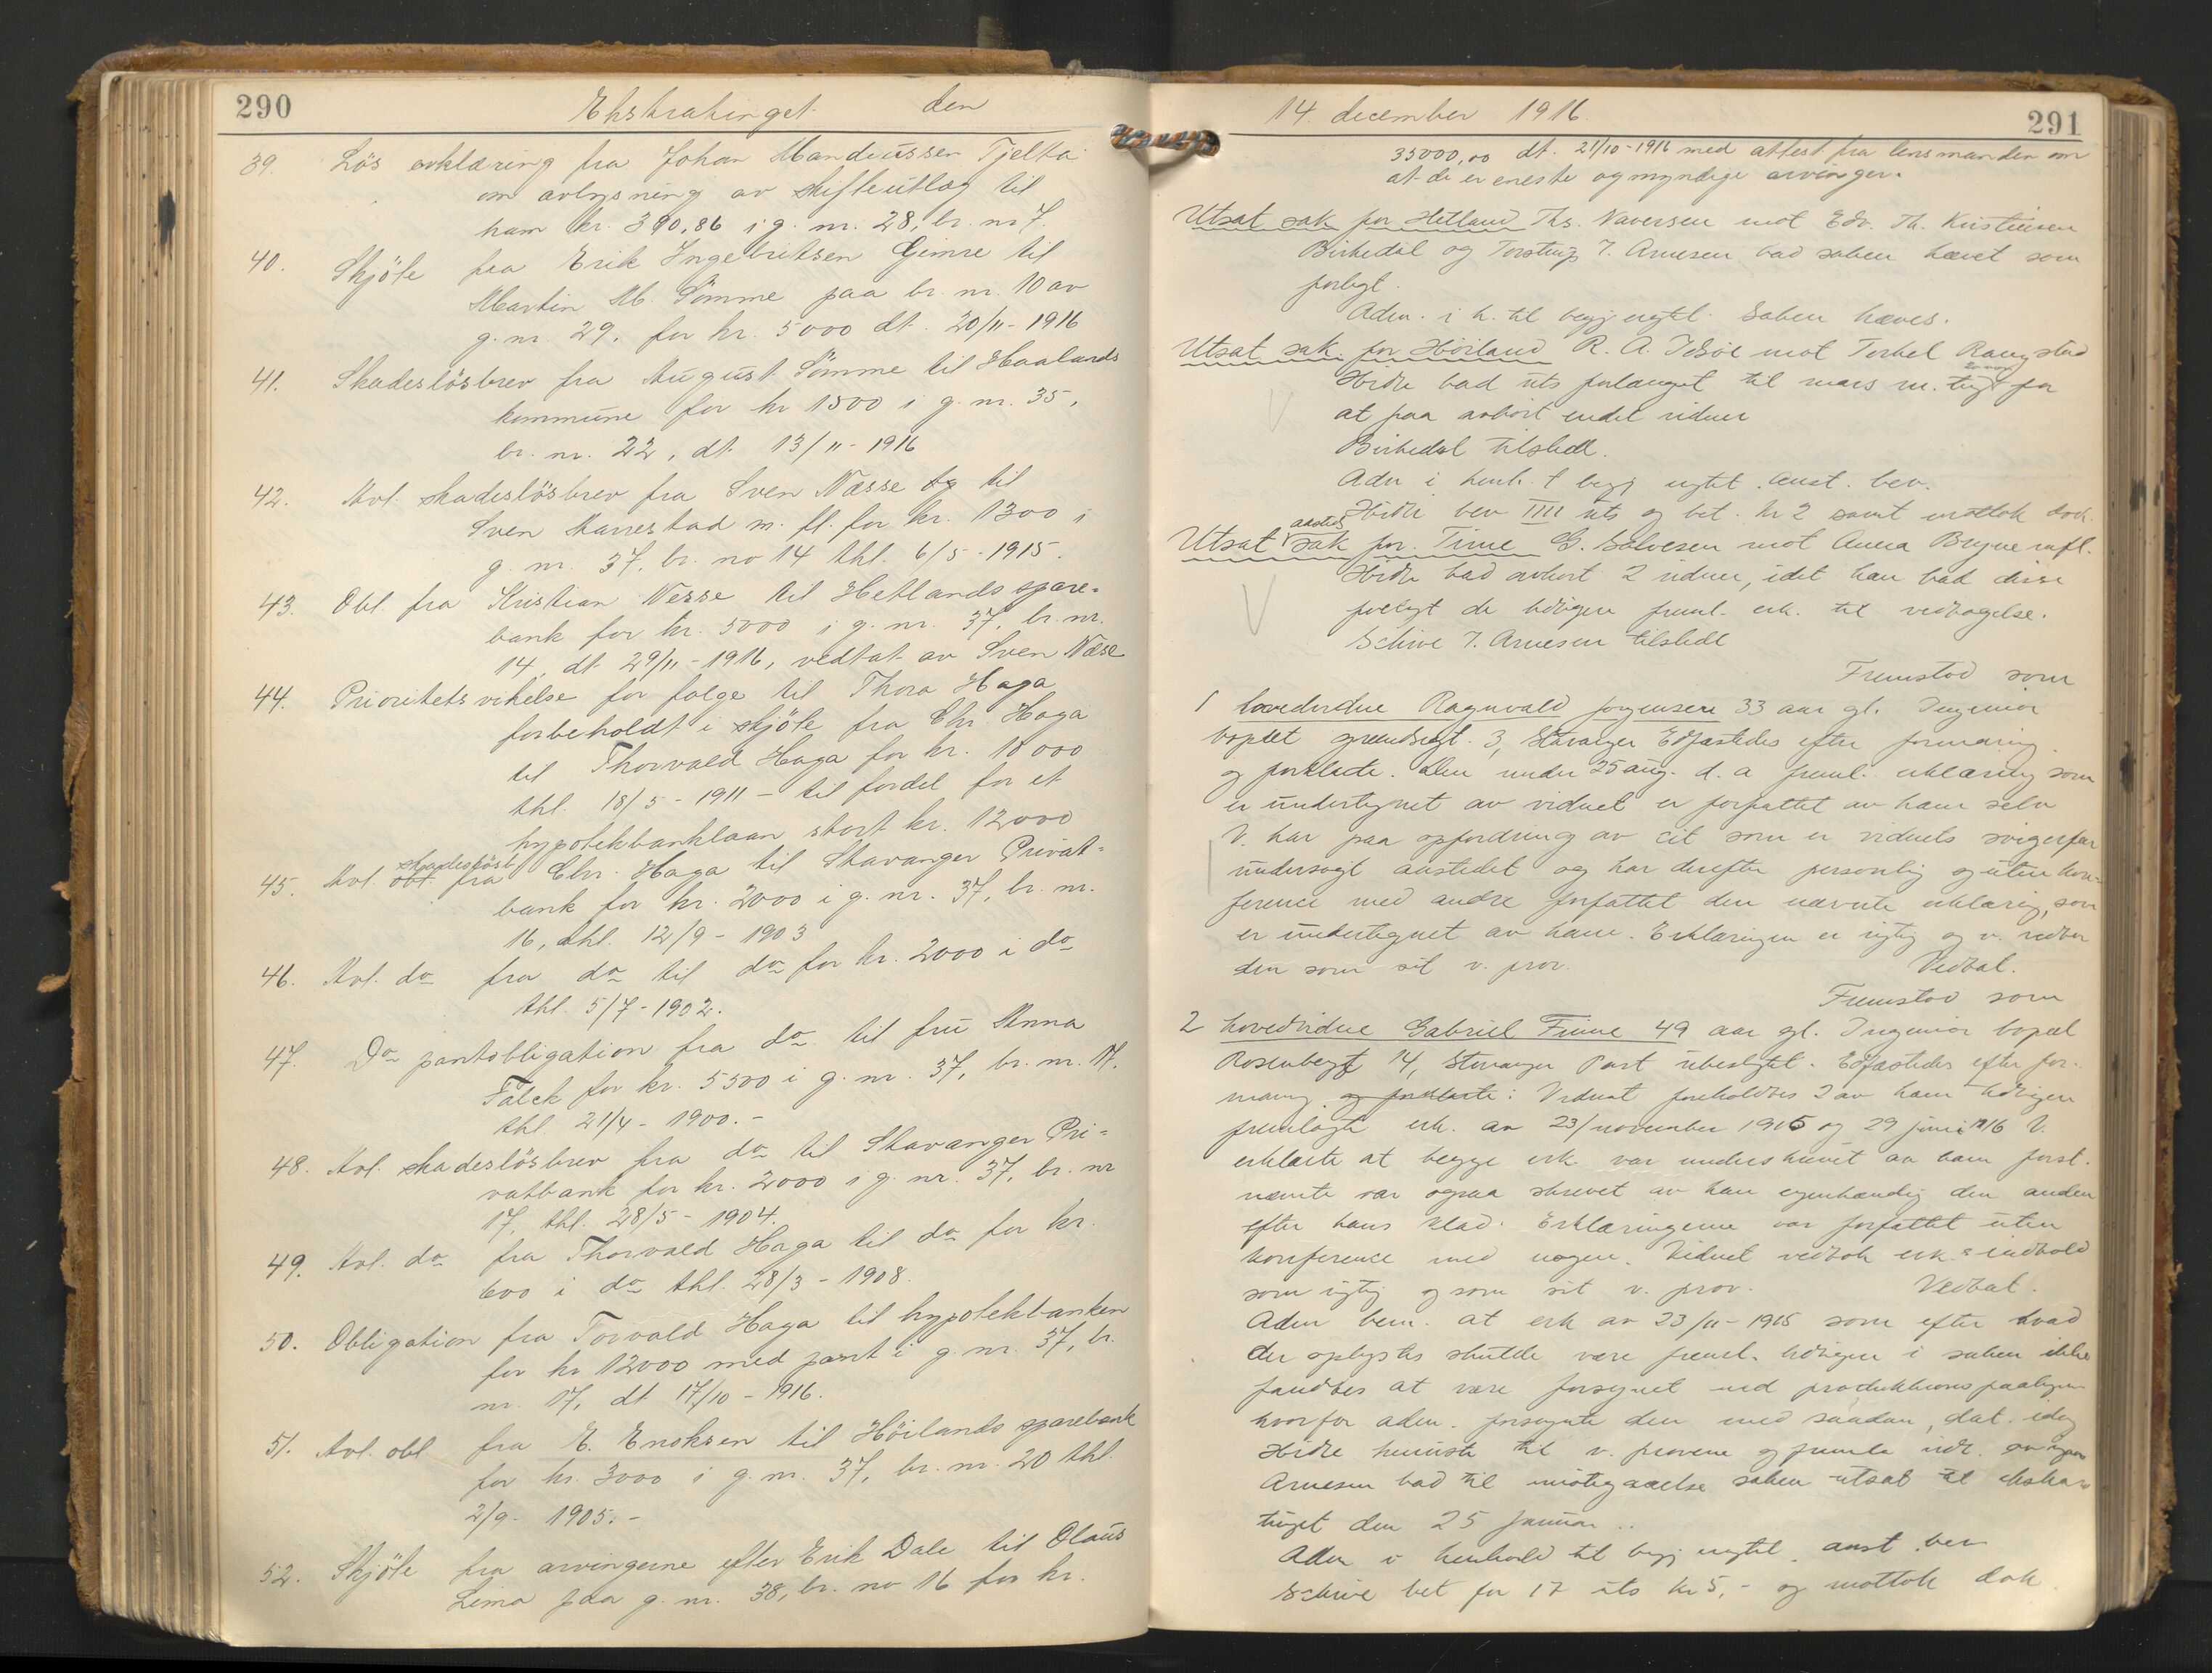 290
Ekstratinget den
39. Løs erklæring fra Johan Mandiussen Tjelta
om avlysning av skifteutlæg til
ham kr. 390,86 i g. nr. 28, br. nr 7.
40. Skjöte fra Erik Ingebritsen Gimre til
Martin M. Sömme paa br. nr. 10 av
g. nr. 29. for kr. 5000 dt. 20/11-1916
41. Skadeslösbrev fra August Sömme til Haalands
kommune for kr 1500 i g. nr. 35,
br. nr. 22, dt. 13/11-1916
42. Avl. skadeslösbrev fra Sven Næsse til
Sven Harrestad m. fl. for kr. 1300 i
g. nr. 37, br. no 14 thl. 6/5-1915.
43. Obl. fra Kristian Nesse til Hetlands spare-
bank for kr. 5000 i g. nr. 37, br. nr.
14, dt 29/11-1916, vedtat av Sven Næse
44. Prioritetsvikelse for folge til Thora Haga
forbeholdt i skjöte fra Chr. Haga
til Thorvald Haga for kr. 10000
thl. 18/5-1911 - til fordel for et
hypotekbanklaan stort kr. 12000
45. Avl. obl. skadeslösb. fra Chr. Haga til Stavanger Privat-
bank for kr. 2000 i g. nr. 37, br. nr.
16, thl. 12/9-1903
46. Avl. do fra do til do for kr. 2000 i do
thl. 5/7-1902.
47. Do pantobligation fra do til fru Anna
Falck for kr. 5500 i g. nr. 37, br. nr. 17.
thl. 21/4-1900.-
48. Avl. skadeslösbrev fra do til Stavanger Pri-
vatbank for kr. 2000 i g. nr. 37, br. nr
17, thl. 28/5-1904.
49. Avl. do fra Thorvald Haga til do for kr.
600 i do thl. 28/3-1908.
50. Obligation fra Torvald Haga til hypotekbanken
for kr 12000 med pant i g. nr. 37, br.
nr. 17, dt 17/10-1916.
51. Avl. obl fra E. Enoksen til Höilands sparebank
for kr. 3000 i g. nr. 37, br. nr. 20 thl.
2/9-1905.-
52. Skjöte fra arvingerne efter Erik Dale til Olaus
Lima paa g. nr. 38, br. no 16 for kr.
14. december 1916.
291
35000,00 dt. 21/10-1916 med attest fra lensmanden om
at de er eneste og myndige arvinger.
Utsat sak for Hetland Ths. Naversen mot Edv. Th. Kristensen
Birkedal og Torstrup J. Arnesen bad saken hævet som
forligt.
Adm. i h. til begj. nytet. Saken hæves.
Utsat sak for Höiland R. A. Idsöe mot Torkel Rangstad
bad uts forlænget til mars m. tingt for
at faa avhört endel vidner
Birkedal tilstede.
Adm i henh. t begj nytet. Anst. bev.
bev IIII uts og bet. kr 2 samt mottok dok.
Utsat aasted sak for Time G. Salvesen mot Anna Bryne mfl.
bad avhört 2 vidner, idet han bad disse
forelagt de tidligere freml. erk. til vedtagelse.
Schive J. Arnesen tilstede
Fremstod som
1 hovedvidne Ragnvald Jorgensen 33 aar gl. Ingeniør
bopæl 3, Stavanger Edfæstedes efter formaning
og forklarte. Den under 25 aug. d. a freml. erklæring som
er undertegnet av vidnet er forfattet av ham selv
V. har paa opfordring av cit som er vidnets svigerfar
undersøgt aastedet og har derefter personlig og uten kon-
ference med andre forfattet den nævnte erklæring, som
er undertegnet av ham. Erklæringen er rigtig og v. vedtar
den som sit v. prov. Vedtat.
Fremstod som
2 hovedvidne Gabriel Finne 49 aar gl. Ingeniør bopæl
Rosenbergt 14, Stavanger Part ubeslegtet. Edfæstedes efter for-
maning og forklarte: Vidnet foreholdtes 2 av ham tidligere
fremlagte erk. av 23/november 1915 og 29 juni 1916 V.
erklærte at begge erk. var underskrevet av ham først-
nævnte var ogsaa skrevet av ham egenhændig den anden
efter hans klad. Erklæringerne var forfattet uten
konference med nogen. Vidnet vedtok erk.s indhold
som rigtig og som sit v. prov. Vedtat.
Adm bem. at erk av 23/11-1915 som efter hvad
der oplystes skulde være freml. tidligere i saken ikke
fandtes at være forsynet med produktionspaategn
hvorfor adm. forsynte den med saadan, dat. idag
henviste til v. provene og
Arnesen bad til imøtegaaelse saken utsat til ekstra-
tinget den 25 januar..
Adm i henhold til begj nytet. anst. bev
Schive bet for 17 uts kr 5,- og mottok dok.